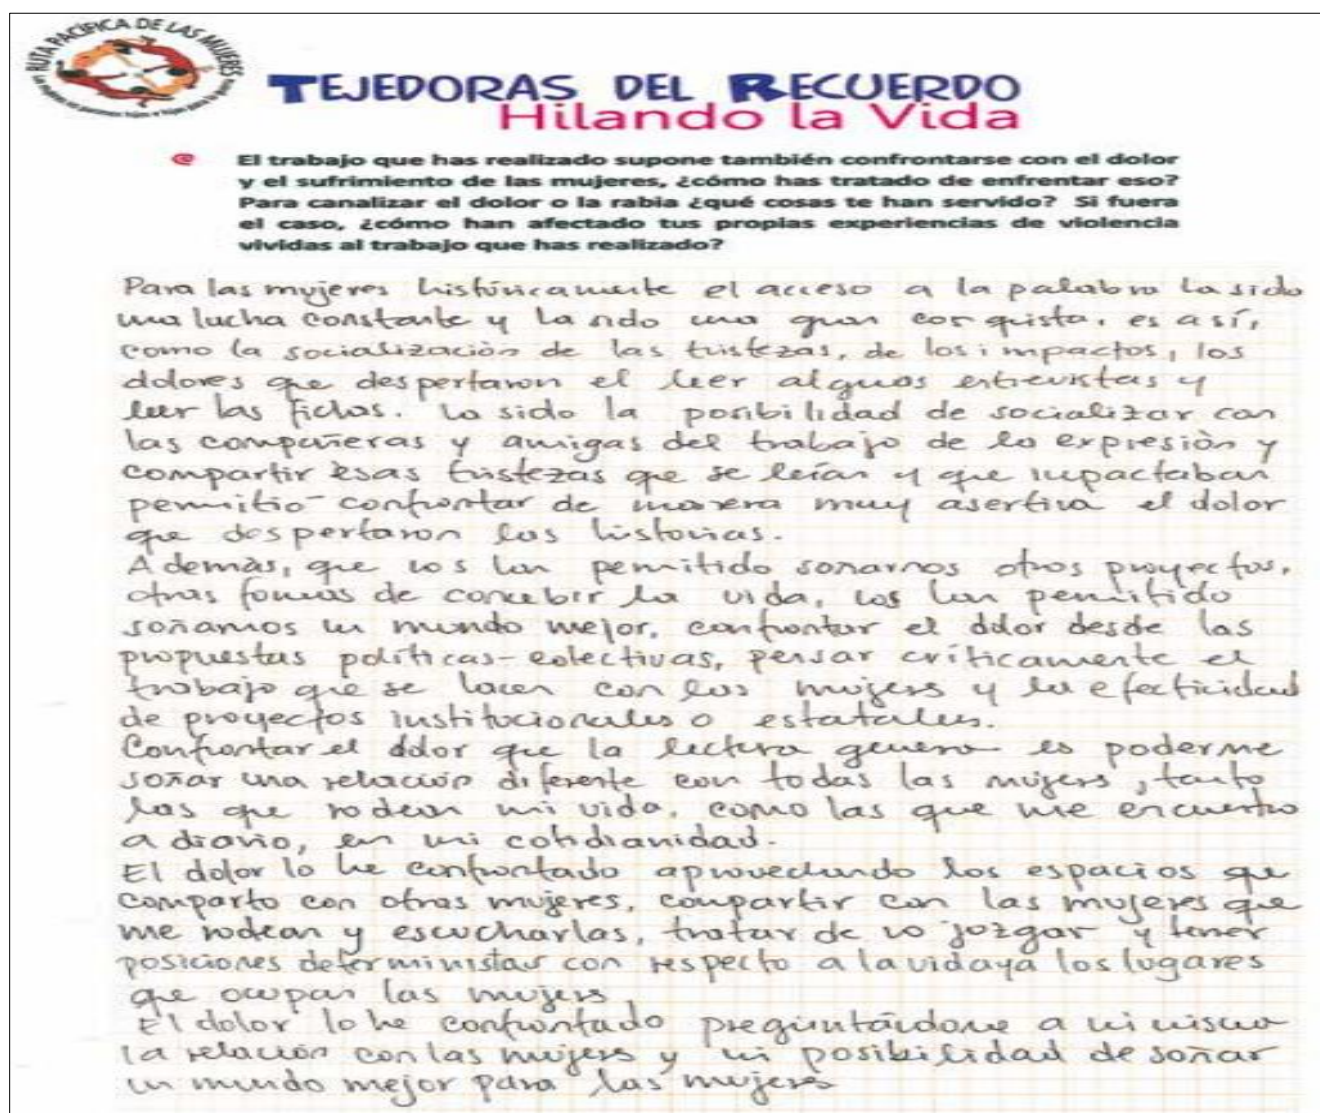 RUTA PACÍFICA DE LAS MUJERES
TEJEDORAS DEL RECUERDO
Hilando la Vida
El trabajo que has realizado supone también confrontarse con el dolor
y el sufrimiento de las mujeres, ¿cómo has tratado de enfrentar eso?
Para canalizar el dolor o la rabia ¿qué cosas te han servido? Si fuera
el caso, ¿cómo han afectado tus propias experiencias de violencia
vividas al trabajo que has realizado?
Para las mujeres históricamente el acceso a la palabra ha sido
una lucha constante y ha sido una gran conquista. es así,
como la socialización de las tristezas, de los impactos, los
dolores que despertaron el leer algunas entrevistas y
leer las fichas. ha sido la posibilidad de socializar con
las compañeras y amigas del trabajo de la expresión y
compartir esas tristezas que se leían y que impactaban
permitio confrontar de manera muy asertiva el dolor
que despertaron las historias.
Además, que nos han permitido soñarnos otros proyectos,
otras formas de concebir la vida, nos han permitido
soñarnos un mundo mejor, confrontar el dolor desde las
propuestas políticas-colectivas, pensar críticamente el
trabajo que se hacen con las mujeres y la efectividad
de proyectos institucionales o estatales.
Confrontar el dolor que la lectura genera es poderme
soñar una relación diferente con todas las mujeres, tanto
las que rodean mi vida, como las que me encuentro
a diario, en mi cotidianidad.
El dolor lo he confrontado aprovechando los espacios que
comparto con otras mujeres, compartir con las mujeres que
me rodean y escucharlas, tratar de no jozgar y tener
posiciones deterministas con respecto a la vida y a los lugares
que ocupan las mujeres
El dolor lo he confrontado preguntándome a mi misma
la relación con las mujeres y mi posibilidad de soñar
un mundo mejor para las mujeres